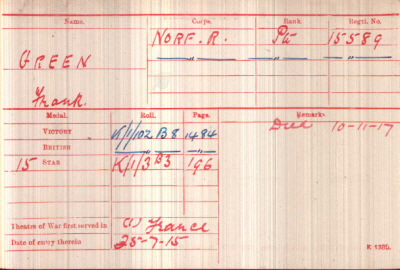 Name. Corps. Rank. Regtl. No.
NORF. R. Pte 15589
GREEN —〃— —〃— —〃—
Frank.
Medal. Roll. Page. Remarks.
VICTORY K/1/102 B8 1484 Died 10-11-17
BRITISH —〃— —〃—
15 STAR K/1/3 B3 196
Theatre of War first served in (1) France
Date of entry therein 28-7-15
K 1380.